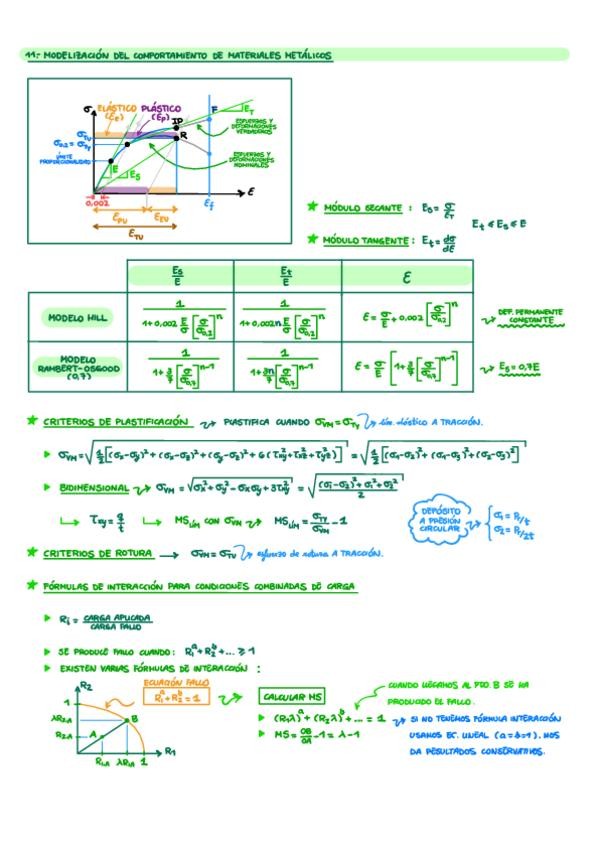 11.- MODELIZACIÓN DEL COMPORTAMIENTO DE MATERIALES METÁLICOS
σ ELÁSTICO (Ee) PLÁSTICO (Ep)
σTU
σ0,2 = σTY
LÍMITE PROPORCIONALIDAD
IP
R
F
ET
E
ES
ESFUERZOS Y DEFORMACIONES VERDADEROS
ESFUERZOS Y DEFORMACIONES NOMINALES
0.002
εPU
εEU
εf
ε
εTU
★ MÓDULO SECANTE : Es = σ/εT
Et ≤ Es ≤ E
★ MÓDULO TANGENTE : Et = dσ/dε
Es/E Et/E ε
MODELO HILL 1/(1+0,002 E/σ [σ/σ0,2]^n) 1/(1+0,002n E/σ [σ/σ0,2]^n) ε = σ/E + 0,002 [σ/σ0,2]^n DEF. PERMANENTE CONSTANTE
MODELO RAMBERT-OSGOOD (0,7) 1/(1+3/7 [σ/σ0,7]^n-1) 1/(1+3n/7 [σ/σ0,7]^n-1) ε = σ/E [1+3/7 [σ/σ0,7]^n-1] Es = 0,7E
★ CRITERIOS DE PLASTIFICACIÓN PLASTIFICA CUANDO σVM = σTY lím. elástico A TRACCIÓN.
▶ σVM = √(1/2 [(σx-σy)²+(σx-σz)²+(σy-σz)²+6(τxy²+τxz²+τyz²)]) = √(1/2 [(σ1-σ2)²+(σ1-σ3)²+(σ2-σ3)²])
▶ BIDIMENSIONAL σVM = √(σx²+σy²-σxσy+3τxy²) = √(((σ1-σ2)²+σ1²+σ2²)/2)
τxy = q/t MSLÍM CON σVM MSLÍM = σTY/σVM - 1
DEPÓSITO A PRESIÓN CIRCULAR
σ1 = Pr/t
σ2 = Pr/2t
★ CRITERIOS DE ROTURA → σVM = σTU esfuerzo de rotura A TRACCIÓN.
★ FÓRMULAS DE INTERACCIÓN PARA CONDICIONES COMBINADAS DE CARGA
▶ Ri = CARGA APLICADA/CARGA FALLO
▶ SE PRODUCE FALLO CUANDO: R1^a+R2^b+... ≥ 1
▶ EXISTEN VARIAS FÓRMULAS DE INTERACCIÓN :
R2
1
λR2A
R2A
A
B
R1A λR1A 1 R1
ECUACIÓN FALLO
R1^a+R2^b = 1
CALCULAR MS
▶ (R1λ)^a + (R2λ)^b + ... = 1
▶ MS = OB/OA - 1 = λ-1
CUANDO LLEGAMOS AL PTO. B SE HA
PRODUCIDO EL FALLO.
SI NO TENEMOS FÓRMULA INTERACCIÓN
USAMOS EC. LINEAL (a=b=1). NOS
DA RESULTADOS CONSERVATIVOS.